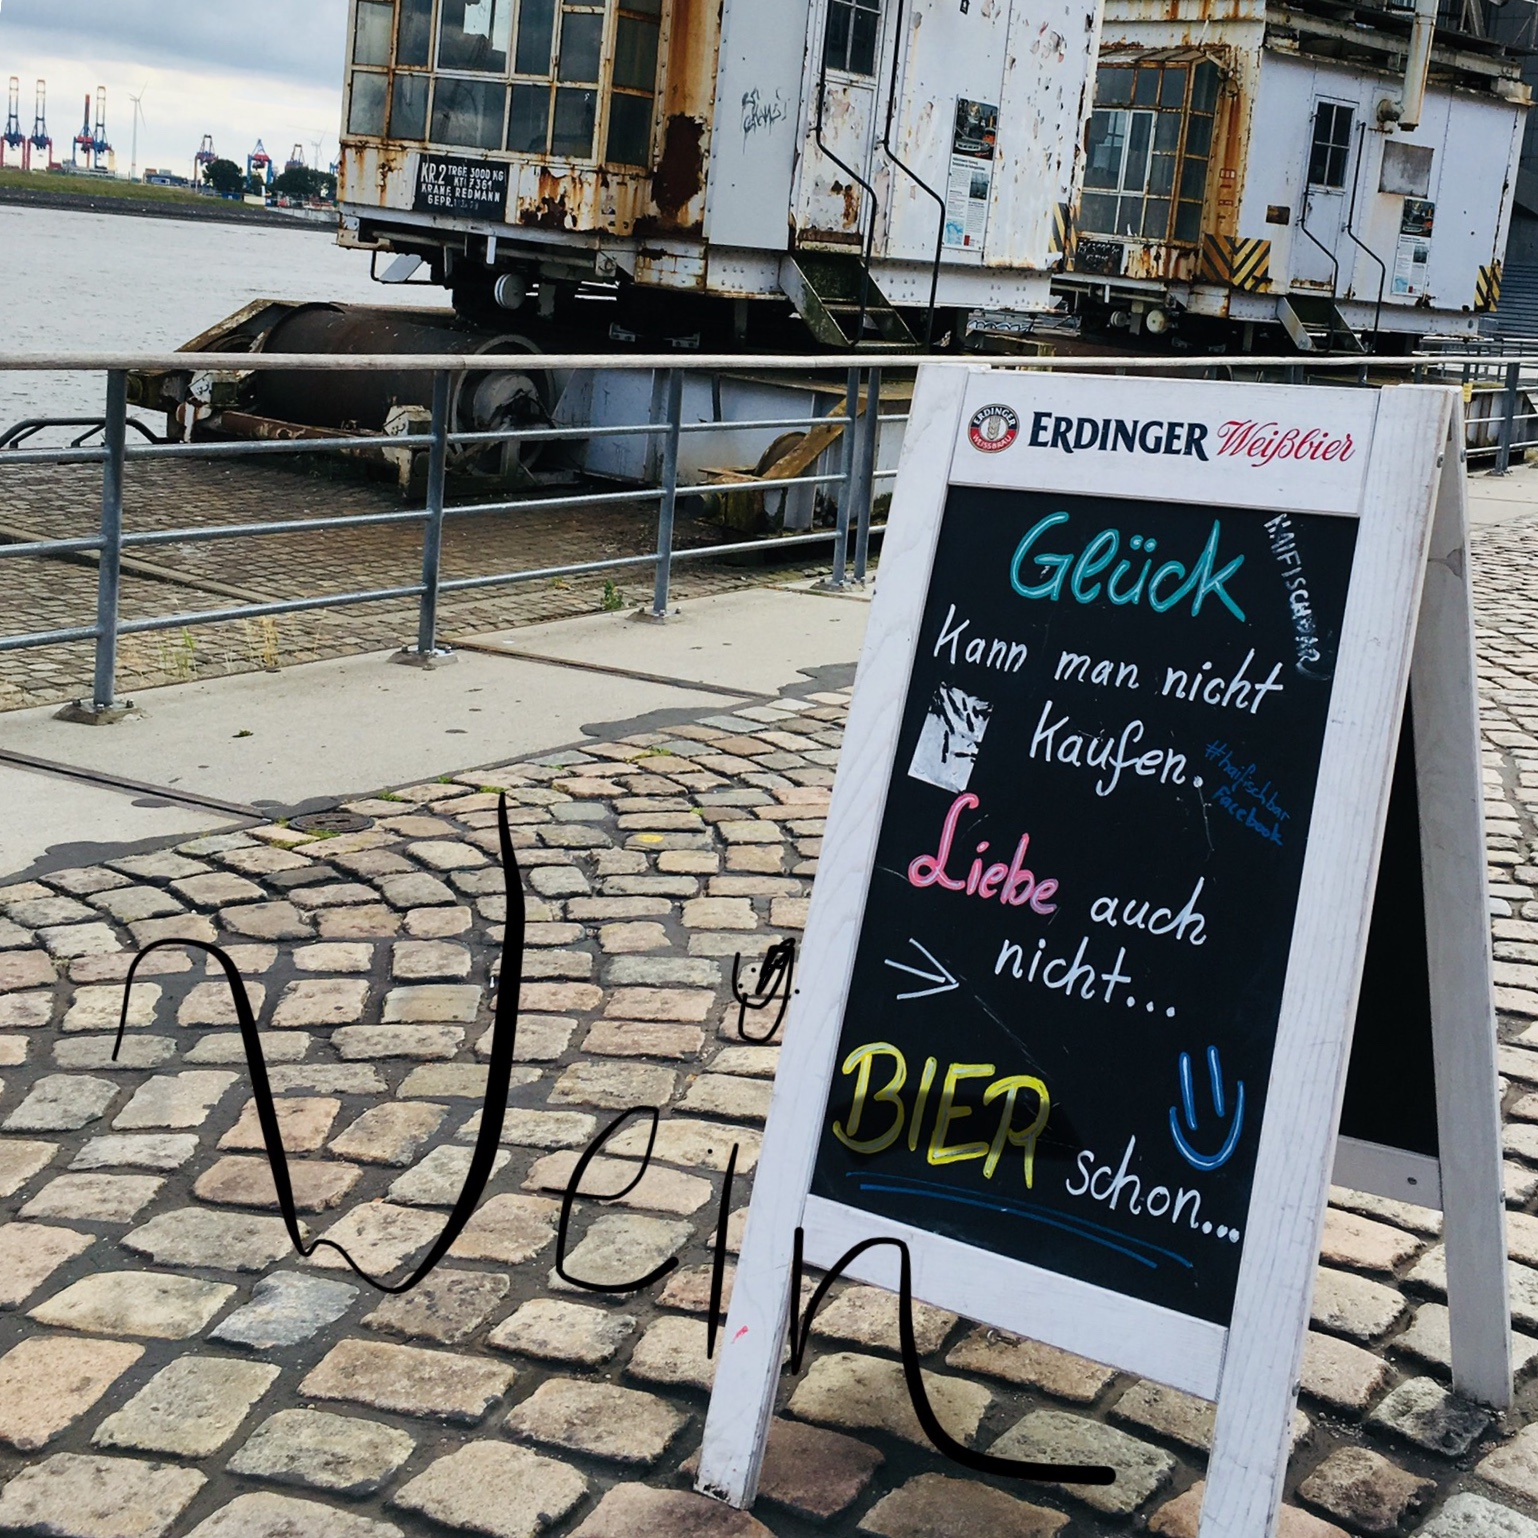 KR.2 TRGF. 3000 KG
KRANE REDMANN
GEPR.
ERDINGER Weißbier
ERDINGER
WEISSBRÄU
HAIFISCHBAR
Glück
Kann man nicht
Kaufen.
#haifischbar
Facebook
Liebe auch
nicht...
BIER schon...
Nein